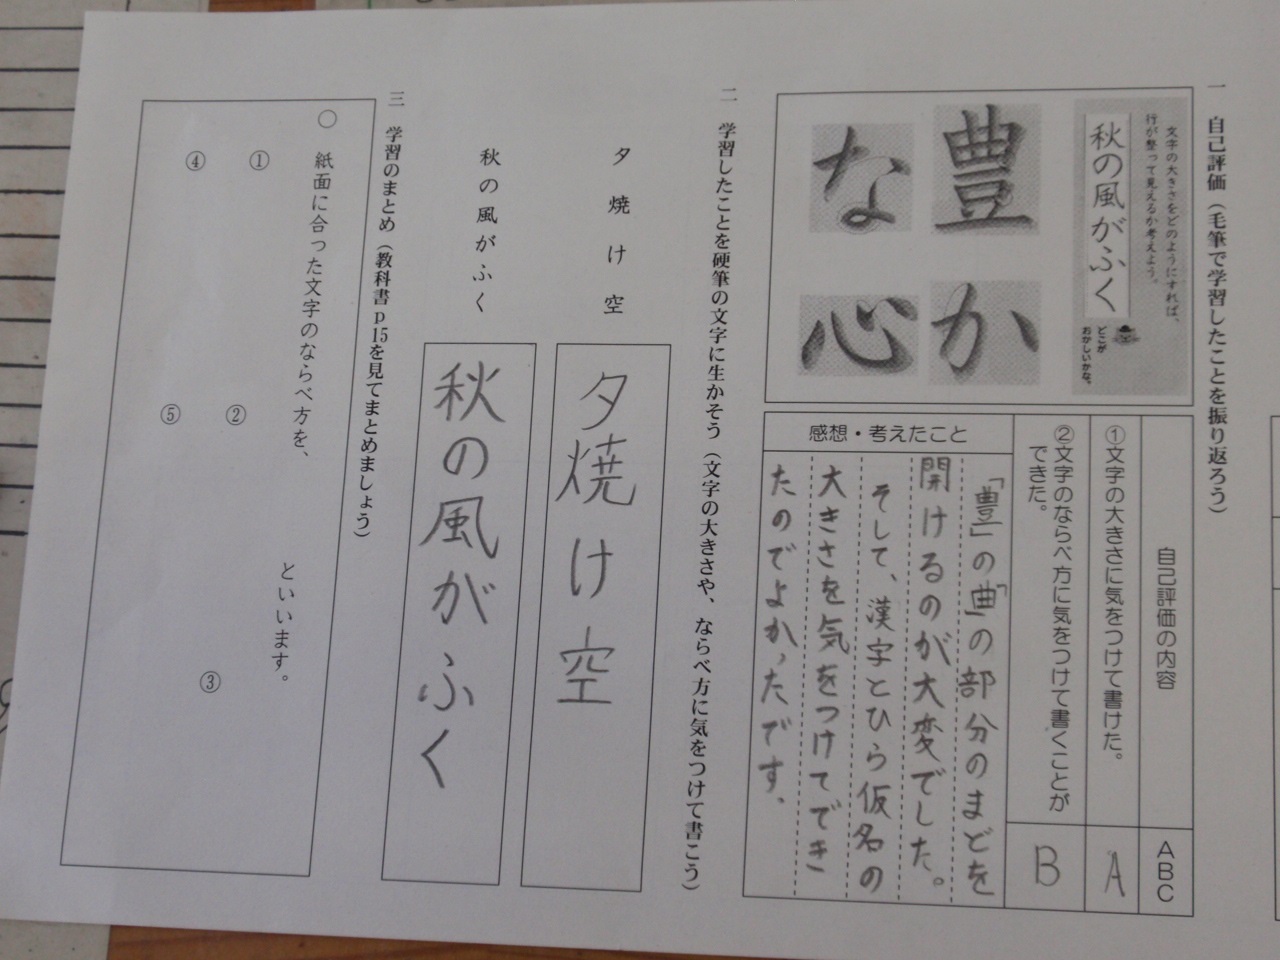 一　自己評価（毛筆で学習したことを振り返ろう）
文字の大きさをどのようにすれば、
行が整って見えるか考えよう。
秋の風がふく
どこが
おかしいかな。
豊か
な心
自己評価の内容
ABC
①文字の大きさに気をつけて書けた。
A
②文字のならべ方に気をつけて書くことが
できた。
B
感想・考えたこと
「豊」の「曲」の部分のまどを
開けるのが大変でした。
そして、漢字とひら仮名の
大きさを気をつけてでき
たのでよかったです、
二　学習したことを硬筆の文字に生かそう（文字の大きさや、ならべ方に気をつけて書こう）
夕焼け空
夕焼け空
秋の風がふく
秋の風がふく
三　学習のまとめ（教科書p15を見てまとめましょう）
○　紙面に合った文字のならべ方を、
といいます。
①
②
③
④
⑤